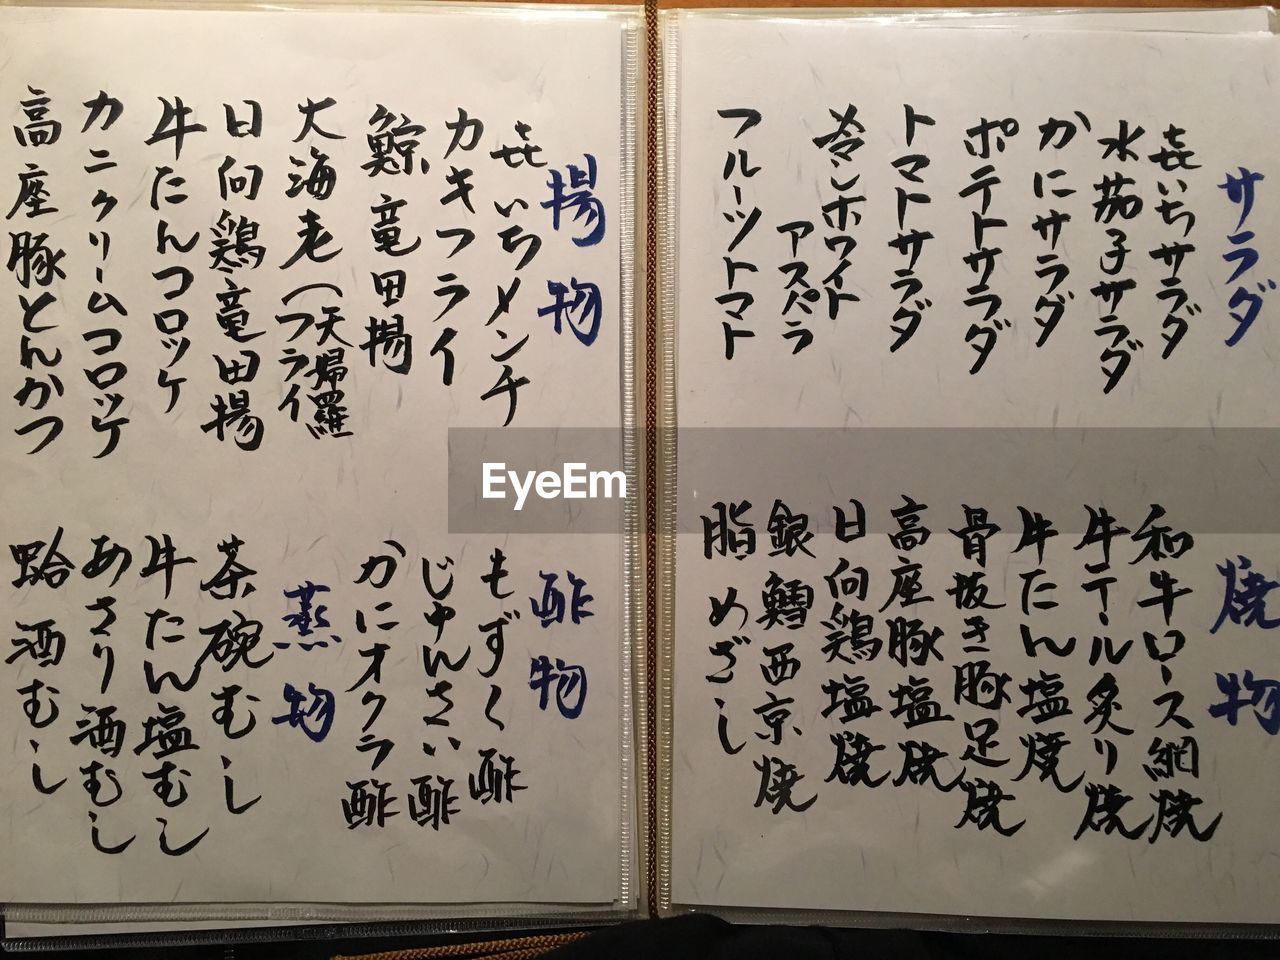 サラダ
㐂いちサラダ
水茄子サラダ
かにサラダ
ポテトサラダ
トマトサラダ
冷しホワイト
アスパラ
フルーツトマト
焼物
和牛ロース網焼
牛テール炙り焼
牛たん塩焼
骨抜き豚足焼
高座豚塩焼
日向鶏塩焼
銀鱈西京焼
脂めざし
揚物
㐂いちメンチ
カキフライ
鯨竜田揚
大海老（天婦羅
フライ
日向鶏竜田揚
牛たんコロッケ
カニクリームコロッケ
高座豚とんかつ
酢物
もずく酢
じゅんさい酢
かにオクラ酢
蒸物
茶碗むし
牛たん塩むし
あさり酒むし
蛤酒むし
EyeEm